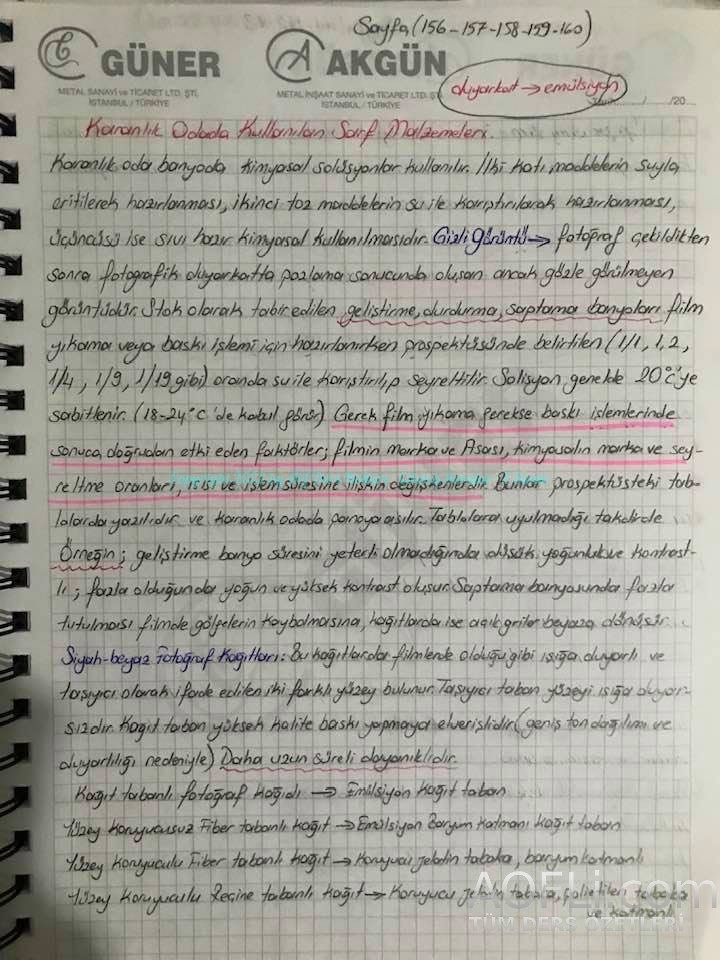 Sayfa (156-157-158-159-160)
GÜNER
METAL SANAYİ ve TİCARET LTD. ŞTİ.
İSTANBUL / TÜRKİYE
AKGÜN
METAL İNŞAAT SANAYİ ve TİCARET LTD. ŞTİ.
İSTANBUL / TÜRKİYE
duyarkat → emülsiyon
/ /20
Karanlık Odada Kullanılan Sarf Malzemeleri.
Karanlık oda banyoda kimyasal solüsyonlar kullanılır. İlki katı maddelerin suyla
eritilerek hazırlanması, ikinci toz maddelerin su ile karıştırılarak hazırlanması,
üçüncüsü ise sıvı hazır kimyasal kullanılmasıdır. Gizli Görüntü → fotoğraf çekildikten
sonra fotografik duyarkatta pozlama sonucunda oluşan ancak gözle görülmeyen
görüntüdür. Stok olarak tabir edilen geliştirme, durdurma, saptama banyoları film
yıkama veya baskı işlemi için hazırlanırken prospektüsünde belirtilen (1/1, 1,2,
1/4, 1/9, 1/19 gibi) oranda su ile karıştırılıp seyreltilir. Solisyon genelde 20°c'ye
sabitlenir. (18-24°C 'de kabul görür) Gerek film yıkama gerekse baskı işlemlerinde
sonuca doğrudan etki eden faktörler; filmin marka ve Asası, kimyasalın marka ve sey-
reltme oranları, ısısı ve işlem süresine ilişkin değişkenlerdir. Bunlar prospektüsteki tab-
lolarda yazılıdır ve karanlık odada panoya asılır. Tablolara uyulmadığı takdirde
Örneğin; geliştirme banyo süresini yeterli olmadığında düşük yoğunluk ve kontrast-
lı; fazla olduğunda yoğun ve yüksek kontrast oluşur. Saptama banyosunda fazla
tutulması filmde gölgelerin kaybolmasına, kağıtlarda ise açık griler beyaza dönüşür.
Siyah-beyaz Fotoğraf Kağıtları: Bu kağıtlarda filmlerde olduğu gibi ışığa duyarlı ve
taşıyıcı olarak ifade edilen iki farklı yüzey bulunur. Taşıyıcı taban yüzeyi ışığa duyar-
sızdır. Kağıt taban yüksek kalite baskı yapmaya elverişlidir (geniş ton dağılımı ve
duyarlılığı nedeniyle) Daha uzun süreli dayanıklıdır.
Kağıt tabanlı fotoğraf kağıdı → Emülsiyon kağıt taban
Yüzey koruyucusuz Fiber tabanlı kağıt → Emülsiyon Baryum katmanı kağıt taban
Yüzey koruyuculu Fiber tabanlı kağıt → Koruyucu jelatin tabaka, baryum katmanlı
Yüzey koruyuculu Reçine tabanlı kağıt → Koruyucu jelatin tabaka, polietilen tabaka
ve katmanlı
AOFLi.com
TÜM DERS ÖZETLERİ